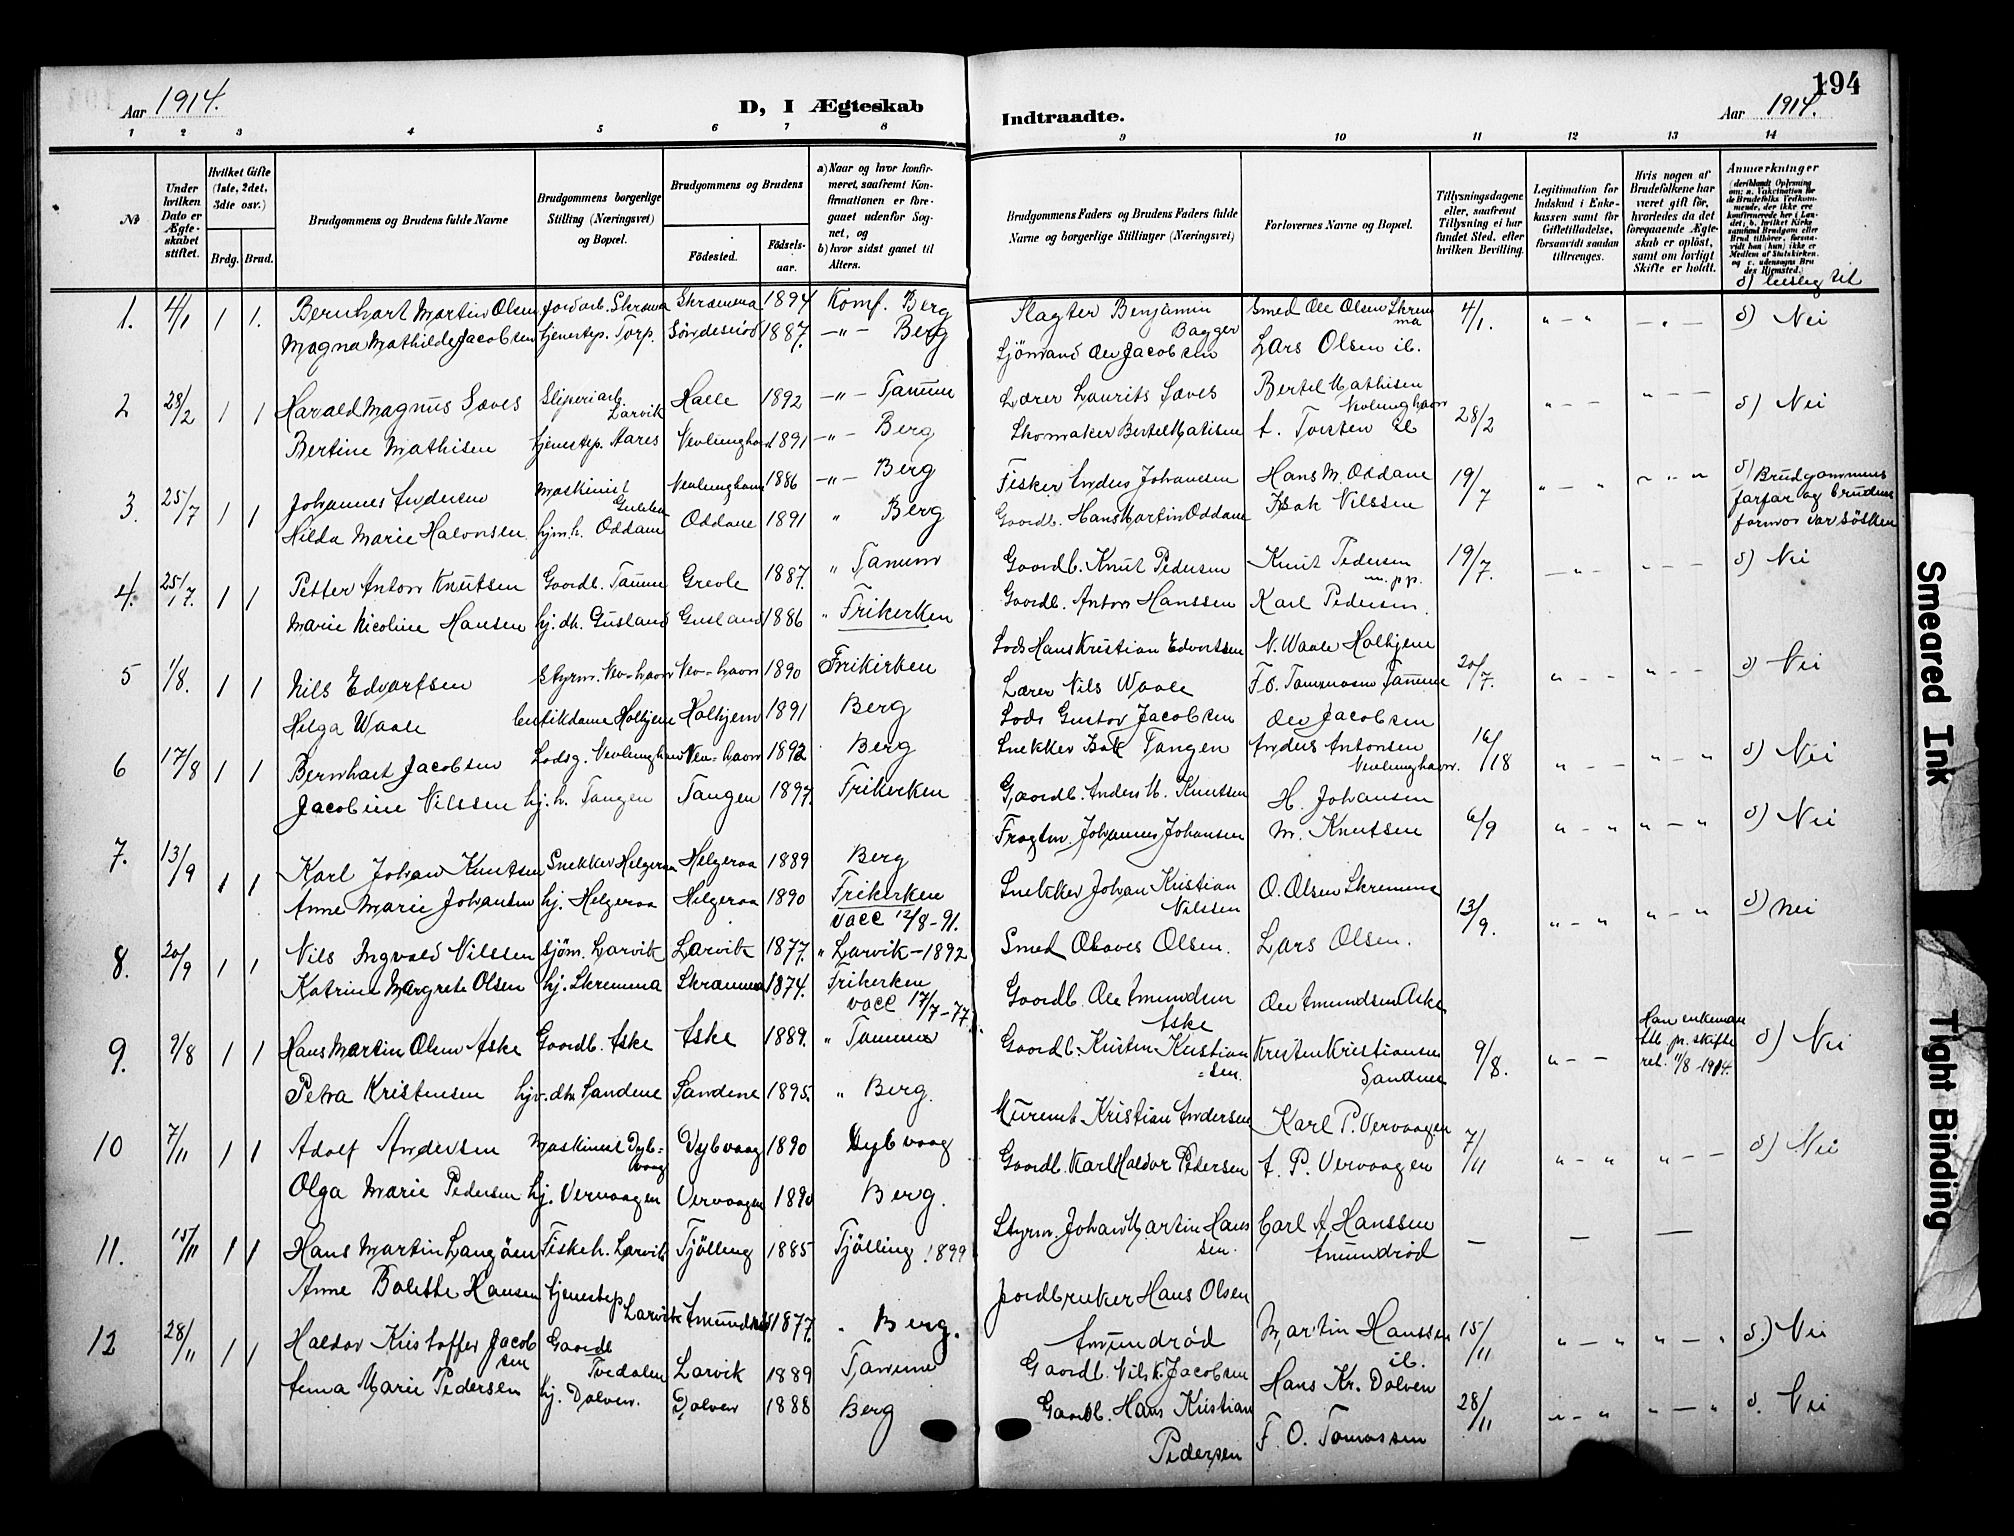 194
Aar 1914.
D, I Ægteskab
Indtraadte.
Aar 1914.
1 2 3 4 5 6 7 8 9 10 11 12 13 14
No
Under hvilken Dato er Ægteskabet stiftet.
Hvilket Gifte (1ste, 2det, 3die osv.)
Brdg. Brud.
Brudgommens og Brudens fulde Navne
Brudgommens borgerlige Stilling (Næringsvei) og Bopæl.
Brudgommens og Brudens
Födested.
Födselsaar.
a) Naar og hvor konfirmeret, saafremt Konfirmationen er foregaaet udenfor Sognet, og
b) hvor sidst gaaet til Alters.
Brudgommens Faders og Brudens Faders fulde Navne og borgerlige Stillinger (Næringsvei)
Forlovernes Navne og Bopæl.
Tillysningsdagene eller, saafremt Tillysning ei har fundet Sted, efter hvilken Bevilling.
Legitimation for Indskud i Enkekassen samt for Giftetilladelse, forsaavidt saadan tiltrænges.
Hvis nogen af Brudefolkene har været gift för, hvorledes da det foregaaende Ægteskab er oplöst, samt om lovligt Skifte er holdt.
Anmærkninger
(deriblandt Oplysning om: a. Vakcination for de Brudefolks Vedkommende, der ikke ere konfirmerede her i Landet; b. hvilket Kirkesamfund Brudgom eller Brud tilhörer, forsaavidt han (hun) ikke er Medlem af Statskirken, og c. udensogns Brudes Hjemsted.)
1. 4/1 1 1. Bernhart Martin Olsen Jordarb. Skræma Skræmma 1894 Konf. Berg Slagter Benjamin Bagger Smed Ole Olsen Skremma 4/1. " - " - " - d) Nei
Magna Mathilde Jacobsen tjenestep. Torp. Söndesröd 1887. - " - Berg Sjömand Ole Jacobsen Lars Olsen ib.
2 28/2 1 1 Harald Magnus Sæves Sliperiarb. Larvik Halle 1892 - " - Tanum Lærer Laurits Sæves Bertel Mathisen Nevlunghavn 28/2 " - - " - - d) Nei
Bertine Mathisen tjenestep. Aares Nevlungha 1891 - " - Berg Skomaker Bertel Matisen A. Torsten
3. 25/7 1 1 Johannes Andersen Maskinist Nevlunghavn 1886 - " - Berg Fisker Anders Johansen Hans M. Oddane 19/7 " - " d) Brudgommens farfar og brudens farmor var søsken
Hilda Marie Halvorsen hjm.h. Oddane Oddane 1891 " Berg Gaardb. Hans Martin Oddane Isak Nilssen
4. 25/7. 1 1 Petter Anton Knutsen Gaardb. Tanum Grevle 1887. " Tanum Gaardb. Knut Pedersen Knut Pedersen m. p.p. 19/7. - " - " - - d) Nei
Marie Nicoline Hansen hj. dh. Gusland Gusland 1886 " Frikerken Gaardb. Anton Hanssen Karl Pedersen.
5 1/8. 1 1 Nils Edvartsen Styrm. Nev-havn Nev-havn 1890 Frikirken Lods Hans Kristian Edvartsen N. Waale Holtjem 20/7. " - - " - - d) Nei
Helga Waale butikdame Holtjem Holtjem 1891 Berg Lærer Nils Waale F. O. Tommasen Tanum
6 17/8 1 1 Bernhart Jacobsen Lodsg. Nevlunghavn Nev-havn 1892 Berg Lods Gustav Jacobsen Ole Jacobsen 16/18 " - - " - " d) Nei
Jacobine Nilssen hj. h. Tangen Tangen 1897. Frikerken Snekker Isak Tangen Anders Antonsen Nevlunghavn.
7. 13/9 1 1 Karl Johan Knutsen Snekker Helgeroa Helgeroa 1889 Berg Gaardb. Anders M. Knutsen H. Johansen 6/9 " - " " - " d) Nei
Anne Marie Johansen hj. Helgeroa Helgeroa 1890 Frikerken vacc 12/8-91. Fragtm. Johannes Johansen M. Knutsen
8. 20/9 1 1 Nils Ingvald Nilssen sjöm. Larvik Larvik 1877. " Larvik - 1892 Snekker Johan Kristian Nilssen O. Olsen Skremma 13/9. " - " " - " d) Nei
Katrine Margrete Olsen hj. Skremma Skræmma 1874. Frikerken vacc 17/7-77. Smed Olaves Olsen. Lars Olsen.
9. 9/8 1 1 Hans Martin Olsen Aske Gaardb. Aske Aske 1889. " Tanum Gaardb. Ole Amundsen Aske Ole Amundsen Aske 9/8. " - - Han enkeman Att. pr. skifteret. 11/8-1914. d) Nei
Petra Kristensen hjv. dh. Sandene Sandene 1895. " Berg. Gaardb. Kristen Kristiansen Kristen Kristiansen Sandene
10 7/11 1 1 Adolf Andersen Maskinist Dybvaag Dybvaag 1890 Dybvaag Murermt. Kristian Andersen Karl P. Vervaagen 7/11 " - " " - - d) Nei
Olga Marie Pedersen hj. Vervaagen Vervaagen 1890 Berg. Gaardb. Karl Haldor Pedersen A. P. Vervaagen
11. 15/11 1 1 Hans Martin Langöen Fiskeh. Larvik Tjölling 1885 Tjölling. 1899 Styrm. Johan Martin Hansen. Carl A Hanssen Amundrød - - -
Anne Bolette Hansen tjenestep Larvik Amundrød 1877. " Berg. Jordbruker Hans Olsen Amundrød Martin Hanssen ib. 15/11 " - " " - " d.) Nei
12 28/11 1 1 Haldor Kristoffer Jacobsen Gaardb Tvedalen Larvik 1889 Tanum Gaardb. Nils K. Jacobsen Hans Kr. Dolven 28/11 " - " " - " d. Nei
Anna Marie Pedersen hj. Dolven. Dolven 1888 Berg Gaardb. Hans Kristian Pedersen F. O. Tomassen
Smeared Ink
Tight Binding